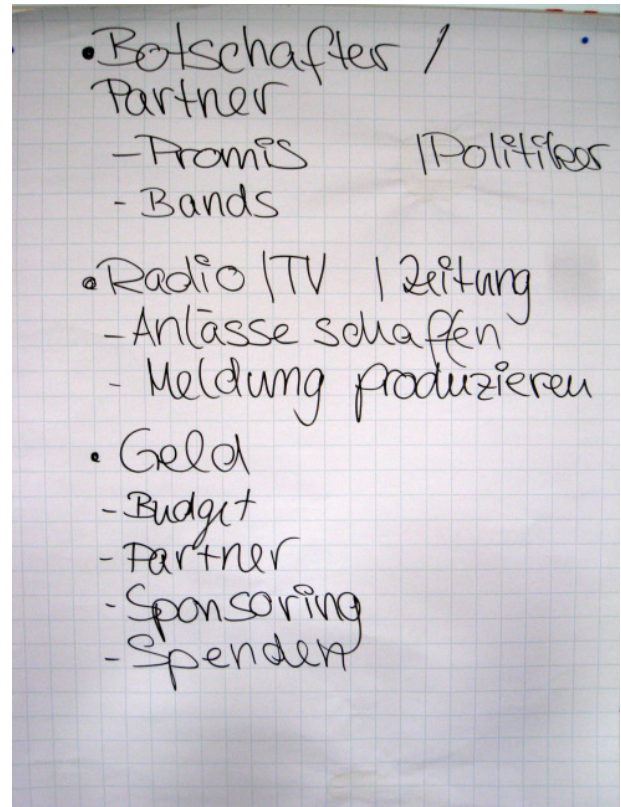 • Botschafter /
Partner
- Promis | Politiker
- Bands
• Radio | TV | Zeitung
- Anlässe schaffen
- Meldung produzieren
• Geld
- Budget
- Partner
- Sponsoring
- Spenden